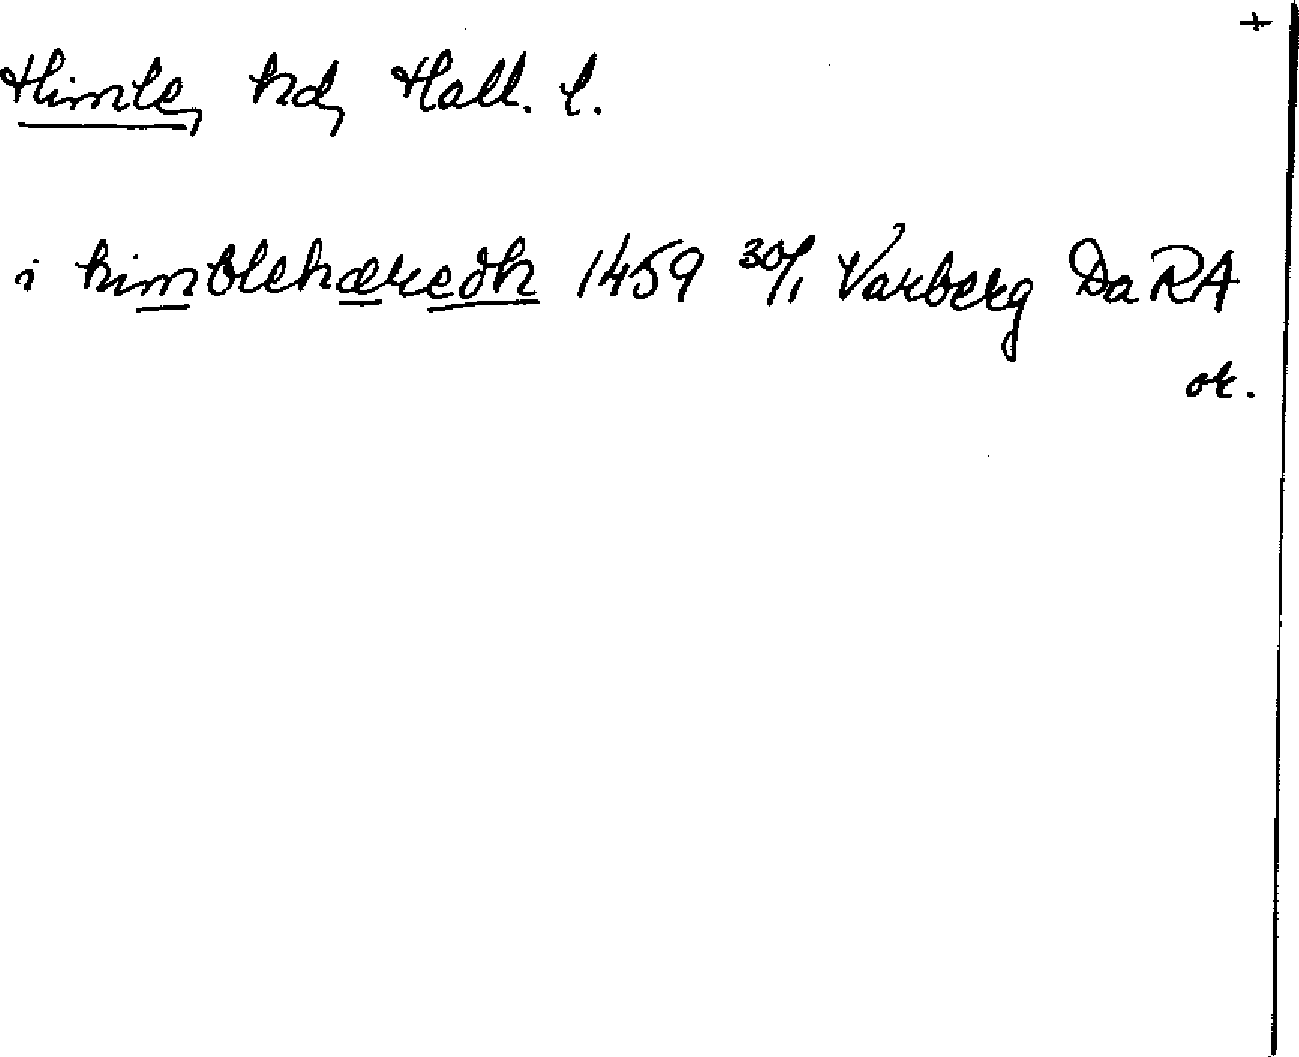 +
Himle, hd, Hall. l.
i himblehæredh 1459 30/1 Varberg Da RA
or.